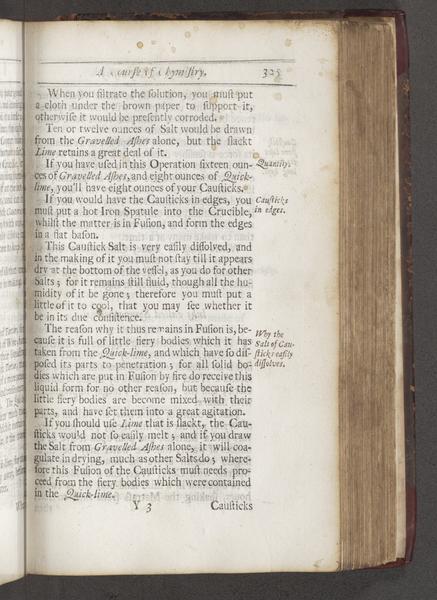 A Course of Chymistry. 325
When you filtrate the ſolution, you muſt put
a cloth under the brown paper to ſupport it,
otherwiſe it would be preſently corroded.
Ten or twelve ounces of Salt would be drawn
from the Gravelled Aſhes alone, but the ſlackt
Lime retains a great deal of it.
If you have uſed in this Operation ſixteen oun-
ces of Gravelled Aſhes, and eight ounces of Quick-
lime, you'll have eight ounces of your Cauſticks.
Quantity.
If you would have the Cauſticks in edges, you
muſt put a hot Iron Spatule into the Crucible,
whilſt the matter is in Fuſion, and form the edges
in a flat baſon.
Cauſticks
in edges.
This Cauſtick Salt is very eaſily diſſolved, and
in the making of it you muſt not ſtay till it appears
dry at the bottom of the veſſel, as you do for other
Salts; for it remains ſtill fluid, though all the hu-
midity of it be gone; therefore you muſt put a
little of it to cool, that you may ſee whether it
be in its due conſiſtence.
The reaſon why it thus remains in Fuſion is, be-
cauſe it is full of little fiery bodies which it has
taken from the Quick-lime, and which have ſo diſ-
poſed its parts to penetration; for all ſolid bo-
dies which are put in Fuſion by fire do receive this
liquid form for no other reaſon, but becauſe the
little fiery bodies are become mixed with their
parts, and have ſet them into a great agitation.
Why the
Salt of Cau-
ſticks eaſily
diſſolves.
If you ſhould uſe Lime that is ſlackt, the Cau-
ſticks would not ſo eaſily melt; and if you draw
the Salt from Gravelled Aſhes alone, it will coa-
gulate in drying, much as other Salts do; where-
fore this Fuſion of the Cauſticks muſt needs pro-
ceed from the fiery bodies which were contained
in the Quick-lime.
Y 3 Cauſticks